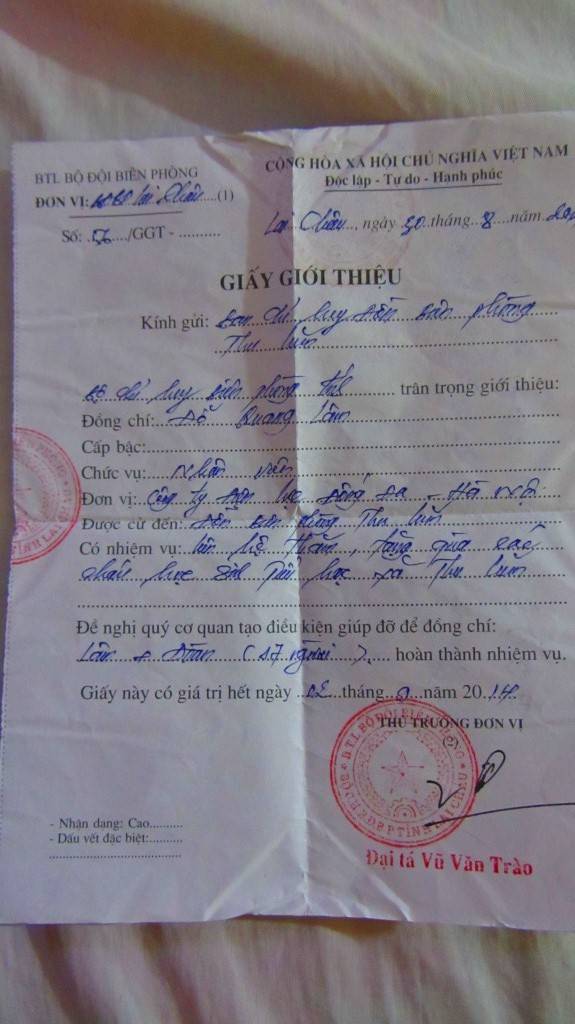 BTL BỘ ĐỘI BIÊN PHÒNG
CỘNG HÒA XÃ HỘI CHỦ NGHĨA VIỆT NAM
ĐƠN VỊ: Lai Châu....(1)
Độc lập - Tự do - Hạnh phúc
Số: ..../GGT - ..........
Lai Châu, ngày 30 tháng 8 năm 20
GIẤY GIỚI THIỆU
Kính gửi: Ban chỉ huy Đồn Biên phòng
Thu Lũm
Bộ chỉ huy Biên phòng tỉnh trân trọng giới thiệu:
Đồng chí: Đỗ Quang Lâm
Cấp bậc:
Chức vụ: Nhân viên
Đơn vị: Công ty Điện lực Đống Đa - Hà Nội
Được cử đến: Đồn Biên phòng Thu Lũm
Có nhiệm vụ: liên hệ thăm, tặng quà các
cháu học sinh Tiểu học xã Thu Lũm
Đề nghị quý cơ quan tạo điều kiện giúp đỡ để đồng chí:
Lâm + Đoàn (17 người) hoàn thành nhiệm vụ.
Giấy này có giá trị hết ngày 02 tháng 9 năm 2014
THỦ TRƯỞNG ĐƠN VỊ
- Nhận dạng: Cao..........
- Dấu vết đặc biệt:..........
Đại tá Vũ Văn Trào